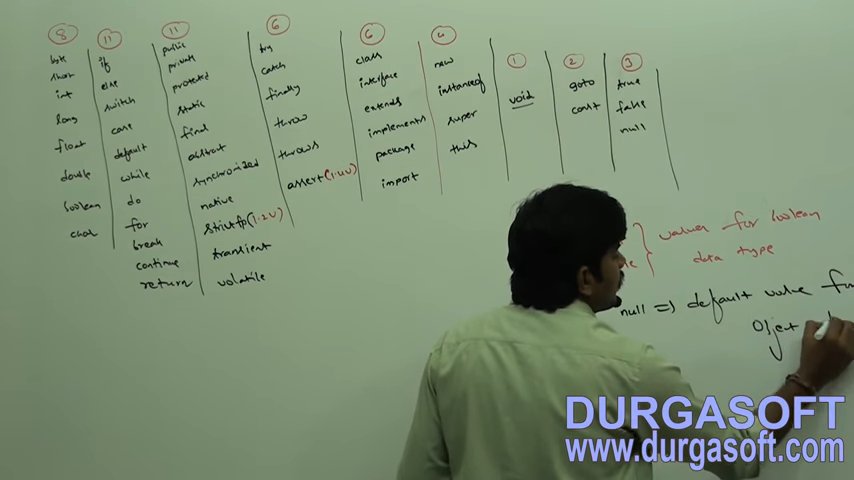 8
byte
short
int
long
float
double
boolean
char
11
if
else
switch
case
default
while
do
for
break
continue
return
11
public
private
protected
static
final
abstract
synchronized
native
strictfp(1.2V)
transient
volatile
6
try
catch
finally
throw
throws
assert(1.4V)
6
class
interface
extends
implements
package
import
4
new
instanceof
super
this
1
void
2
goto
const
3
true
false
null
} values for boolean
data type
null => default value for
Object
DURGASOFT
www.durgasoft.com